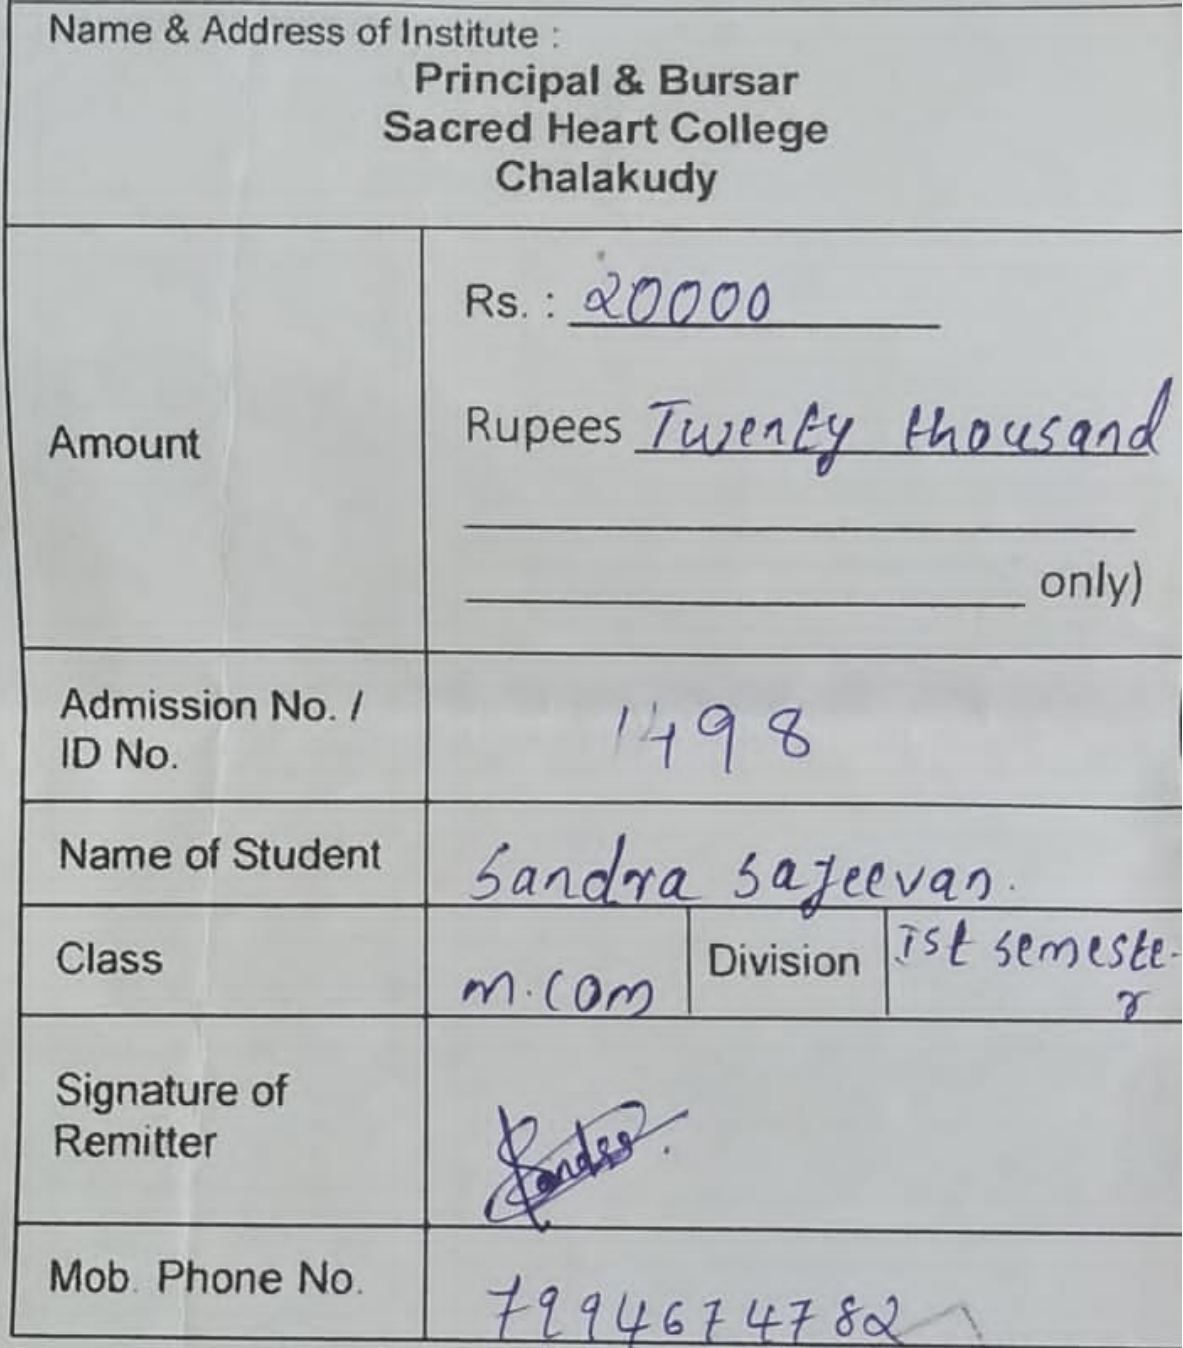 Name & Address of Institute :
Principal & Bursar
Sacred Heart College
Chalakudy
Amount
Rs. : 20000
Rupees Twenty thousand
only)
Admission No. /
ID No.
1498
Name of Student
Sandra Sajeevan.
Class
M.Com
Division
Ist semeste-
r
Signature of
Remitter
Sandra
Mob. Phone No.
7994674782